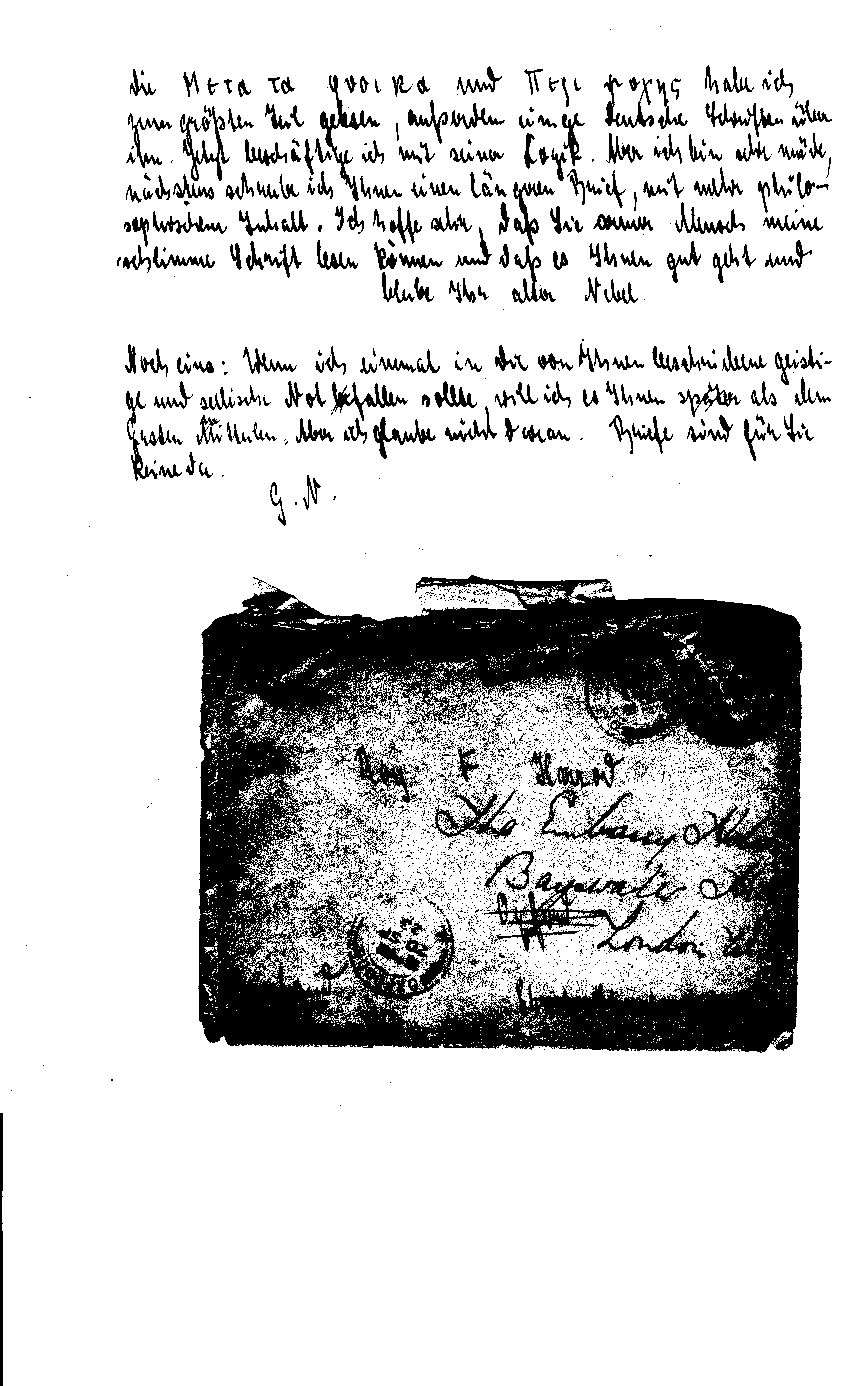 die Μετα τα φυσικα und Περι ψυχης habe ich
zum größten Teil gelesen, außerdem einige deutsche Schriften über
ihn. Jetzt beschäftige ich mit seiner Logik. Aber ich bin sehr müde,
nächstens schreibe ich Ihnen einen längeren Brief, mit mehr philo-
sophischem Inhalt. Ich hoffe sehr, daß Sie armer Mensch meine
schlimme Schrift lesen können und daß es Ihnen gut geht und
bleibe Ihr alter Nebel.
Noch eins: Wenn ich einmal in die von Ihnen beschriebene geisti-
ge und seelische Not befallen sollte, will ich es Ihnen später als dem
Ersten Mitteilen. Aber ich glaube nicht daran. Briefe sind für Sie
keine da.
G. N.
Roy F Harrod
The Embassy
Bayswater
Oxford
London